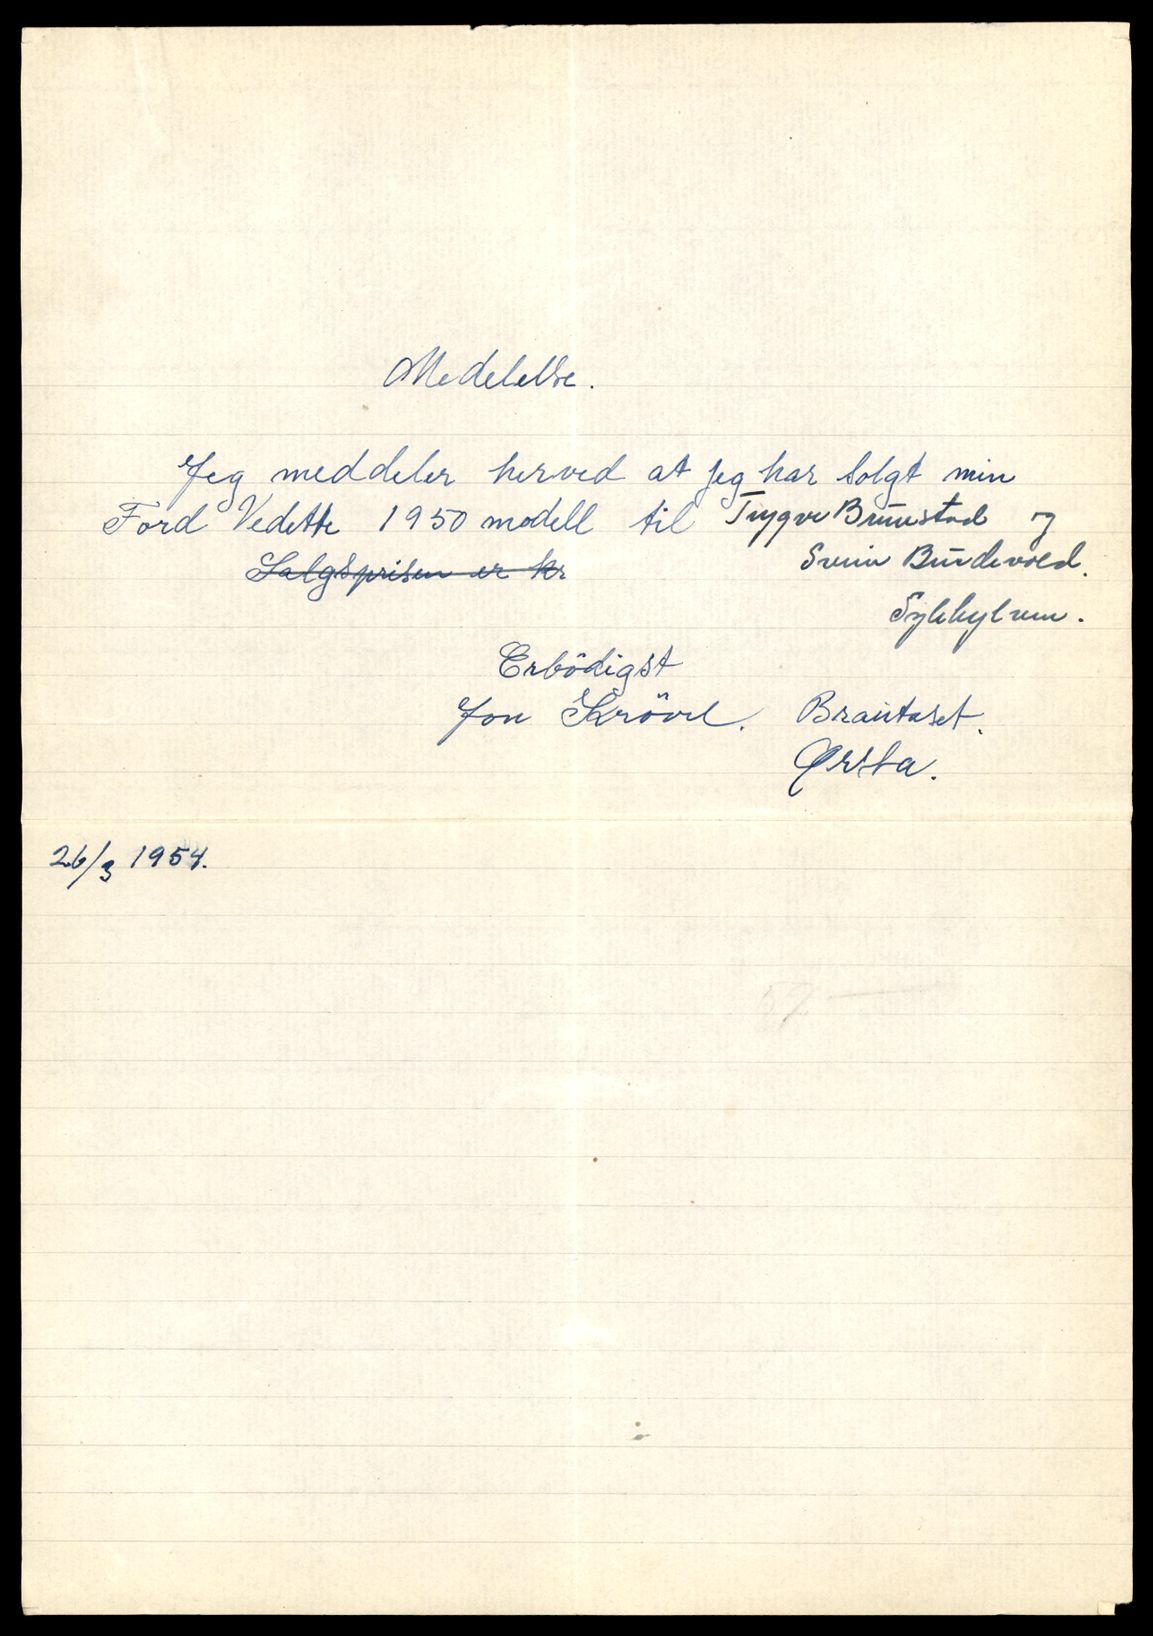 Medelelse.
Jeg meddeler herved at jeg har solgt min
Ford Vedette 1950 modell til Trygve Brunstad og
Salgsprisen er kr Svein Burdevold.
Sykkylven.
Erbödigst
Jon Krövel. Brautaset.
Ørsta.
26/3 1954.